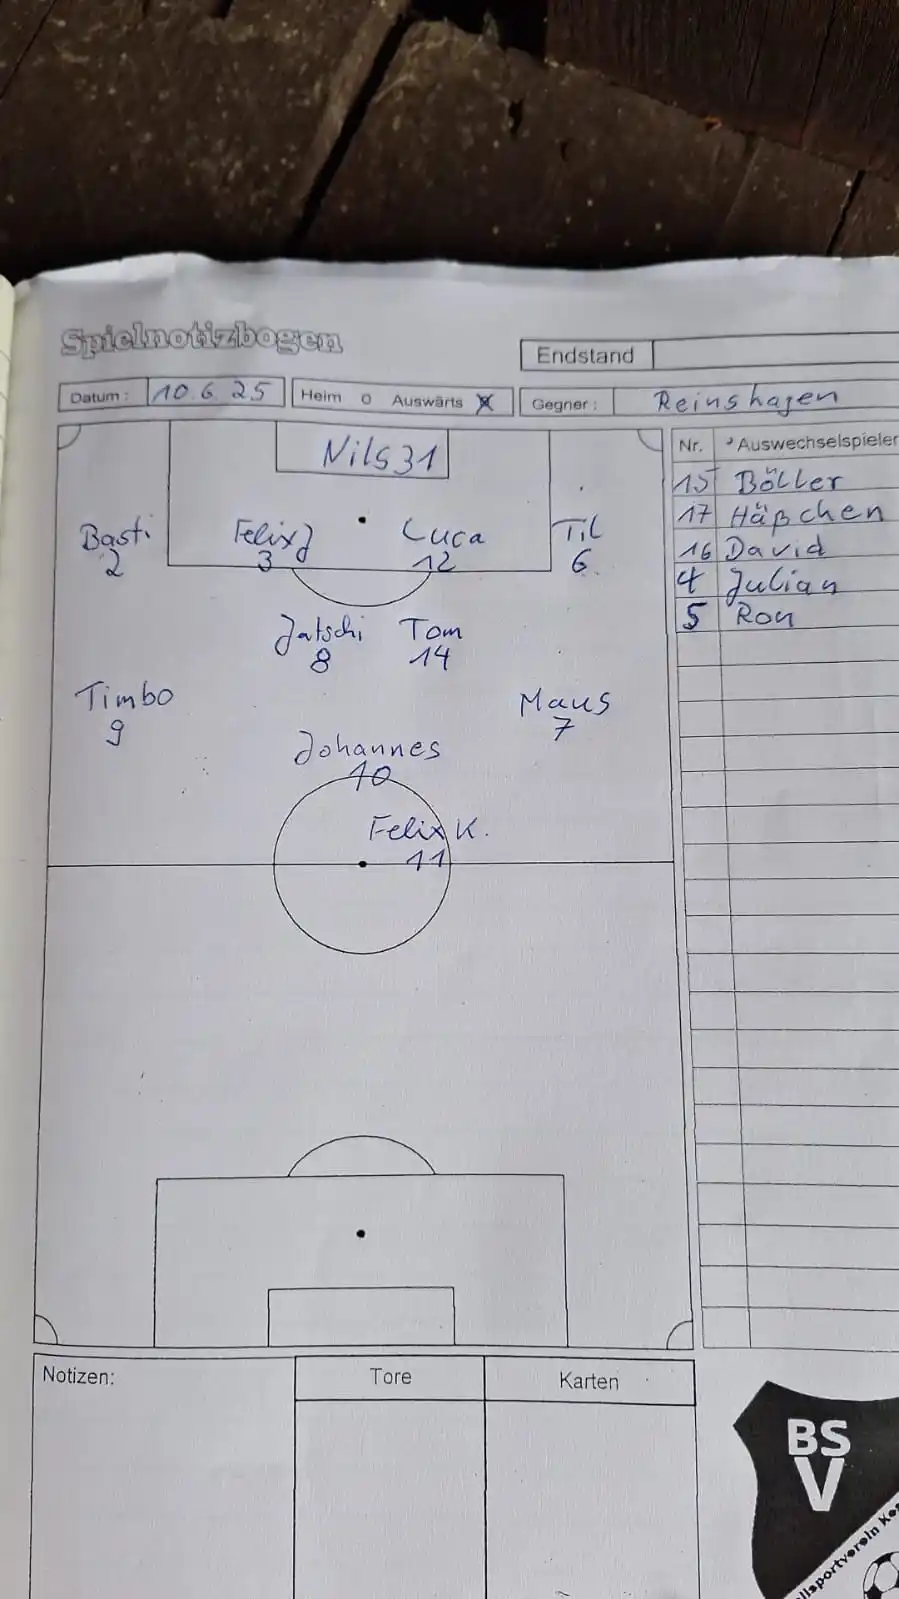 Spielnotizbogen
Endstand
Datum: 10.6.25 Heim o Auswärts x Gegner: Reinshagen
Nils 31
Nr. Auswechselspieler
15 Böller
17 Häßchen
16 David
4 Julian
5 Ron
Basti Felix J Luca Til
2 3 12 6
Jatschi Tom
8 14
Timbo Maus
9 7
Johannes
10
Felix K.
11
Notizen: Tore Karten
BS
V